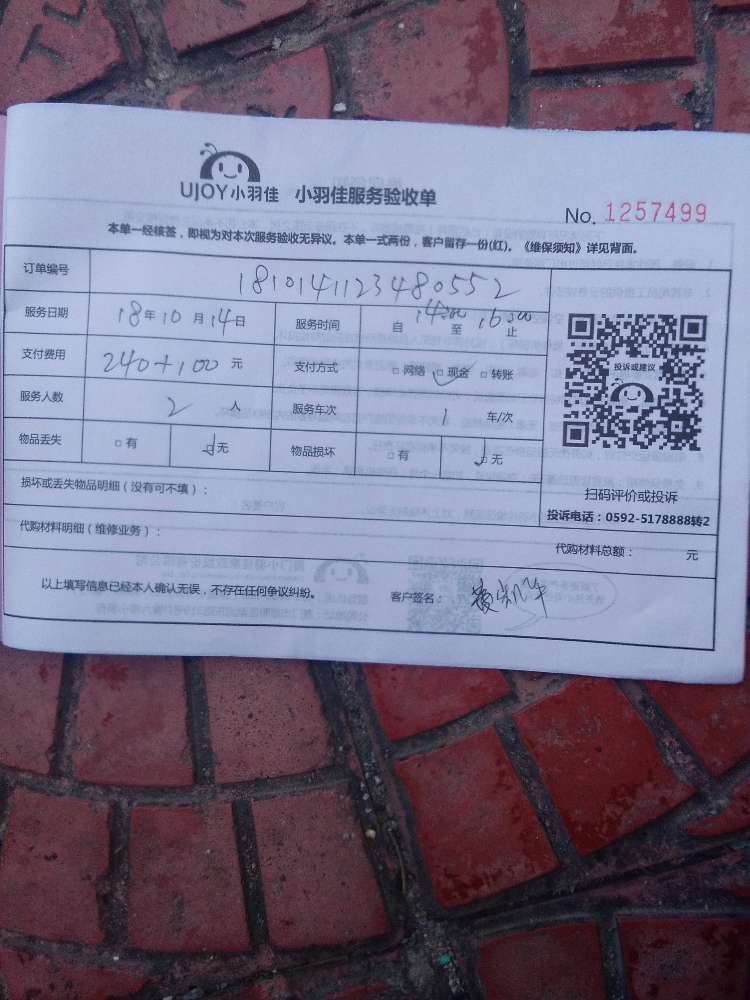 UJOY小羽佳 小羽佳服务验收单
No. 1257499
本单一经核签，即视为对本次服务验收无异议。本单一式两份，客户留存一份(红)。《维保须知》详见背面。
订单编号 1810141123480552
服务日期 18年10月14日 服务时间 自14:00至16:00止
支付费用 240+100元 支付方式 □网络 □现金 □转账
服务人数 2人 服务车次 1车/次
物品丢失 □有 □无 物品损坏 □有 □无
投诉或建议
扫码评价或投诉
投诉电话：0592-5178888转2
损坏或丢失物品明细（没有可不填）：
代购材料明细（维修业务）： 代购材料总额： 元
以上填写信息已经本人确认无误，不存在任何争议纠纷。 客户签名：